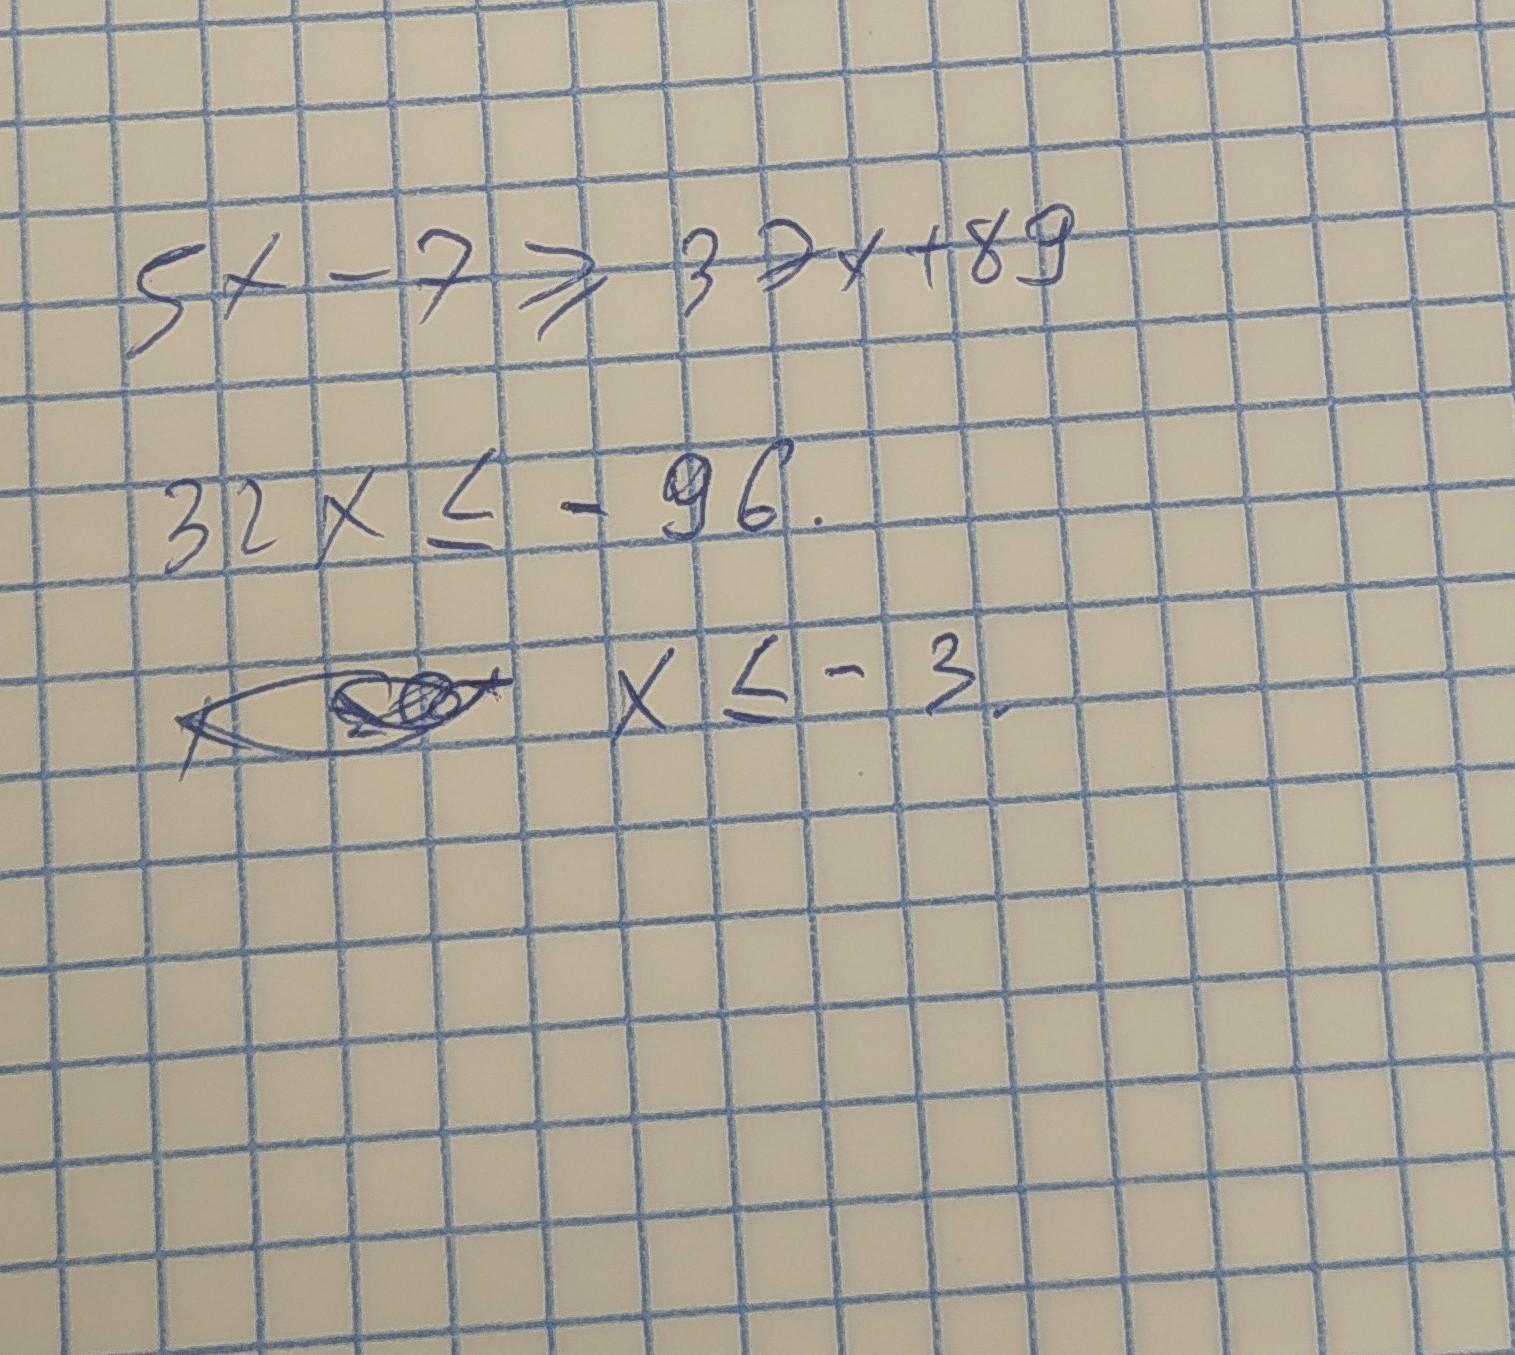 5x - 7 ⩾ 37x + 89
32x ≤ - 96.
x ≤ - 3.